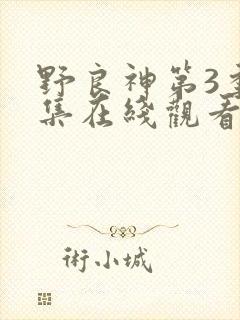 野良神第3季
集在綫觀看
術小城